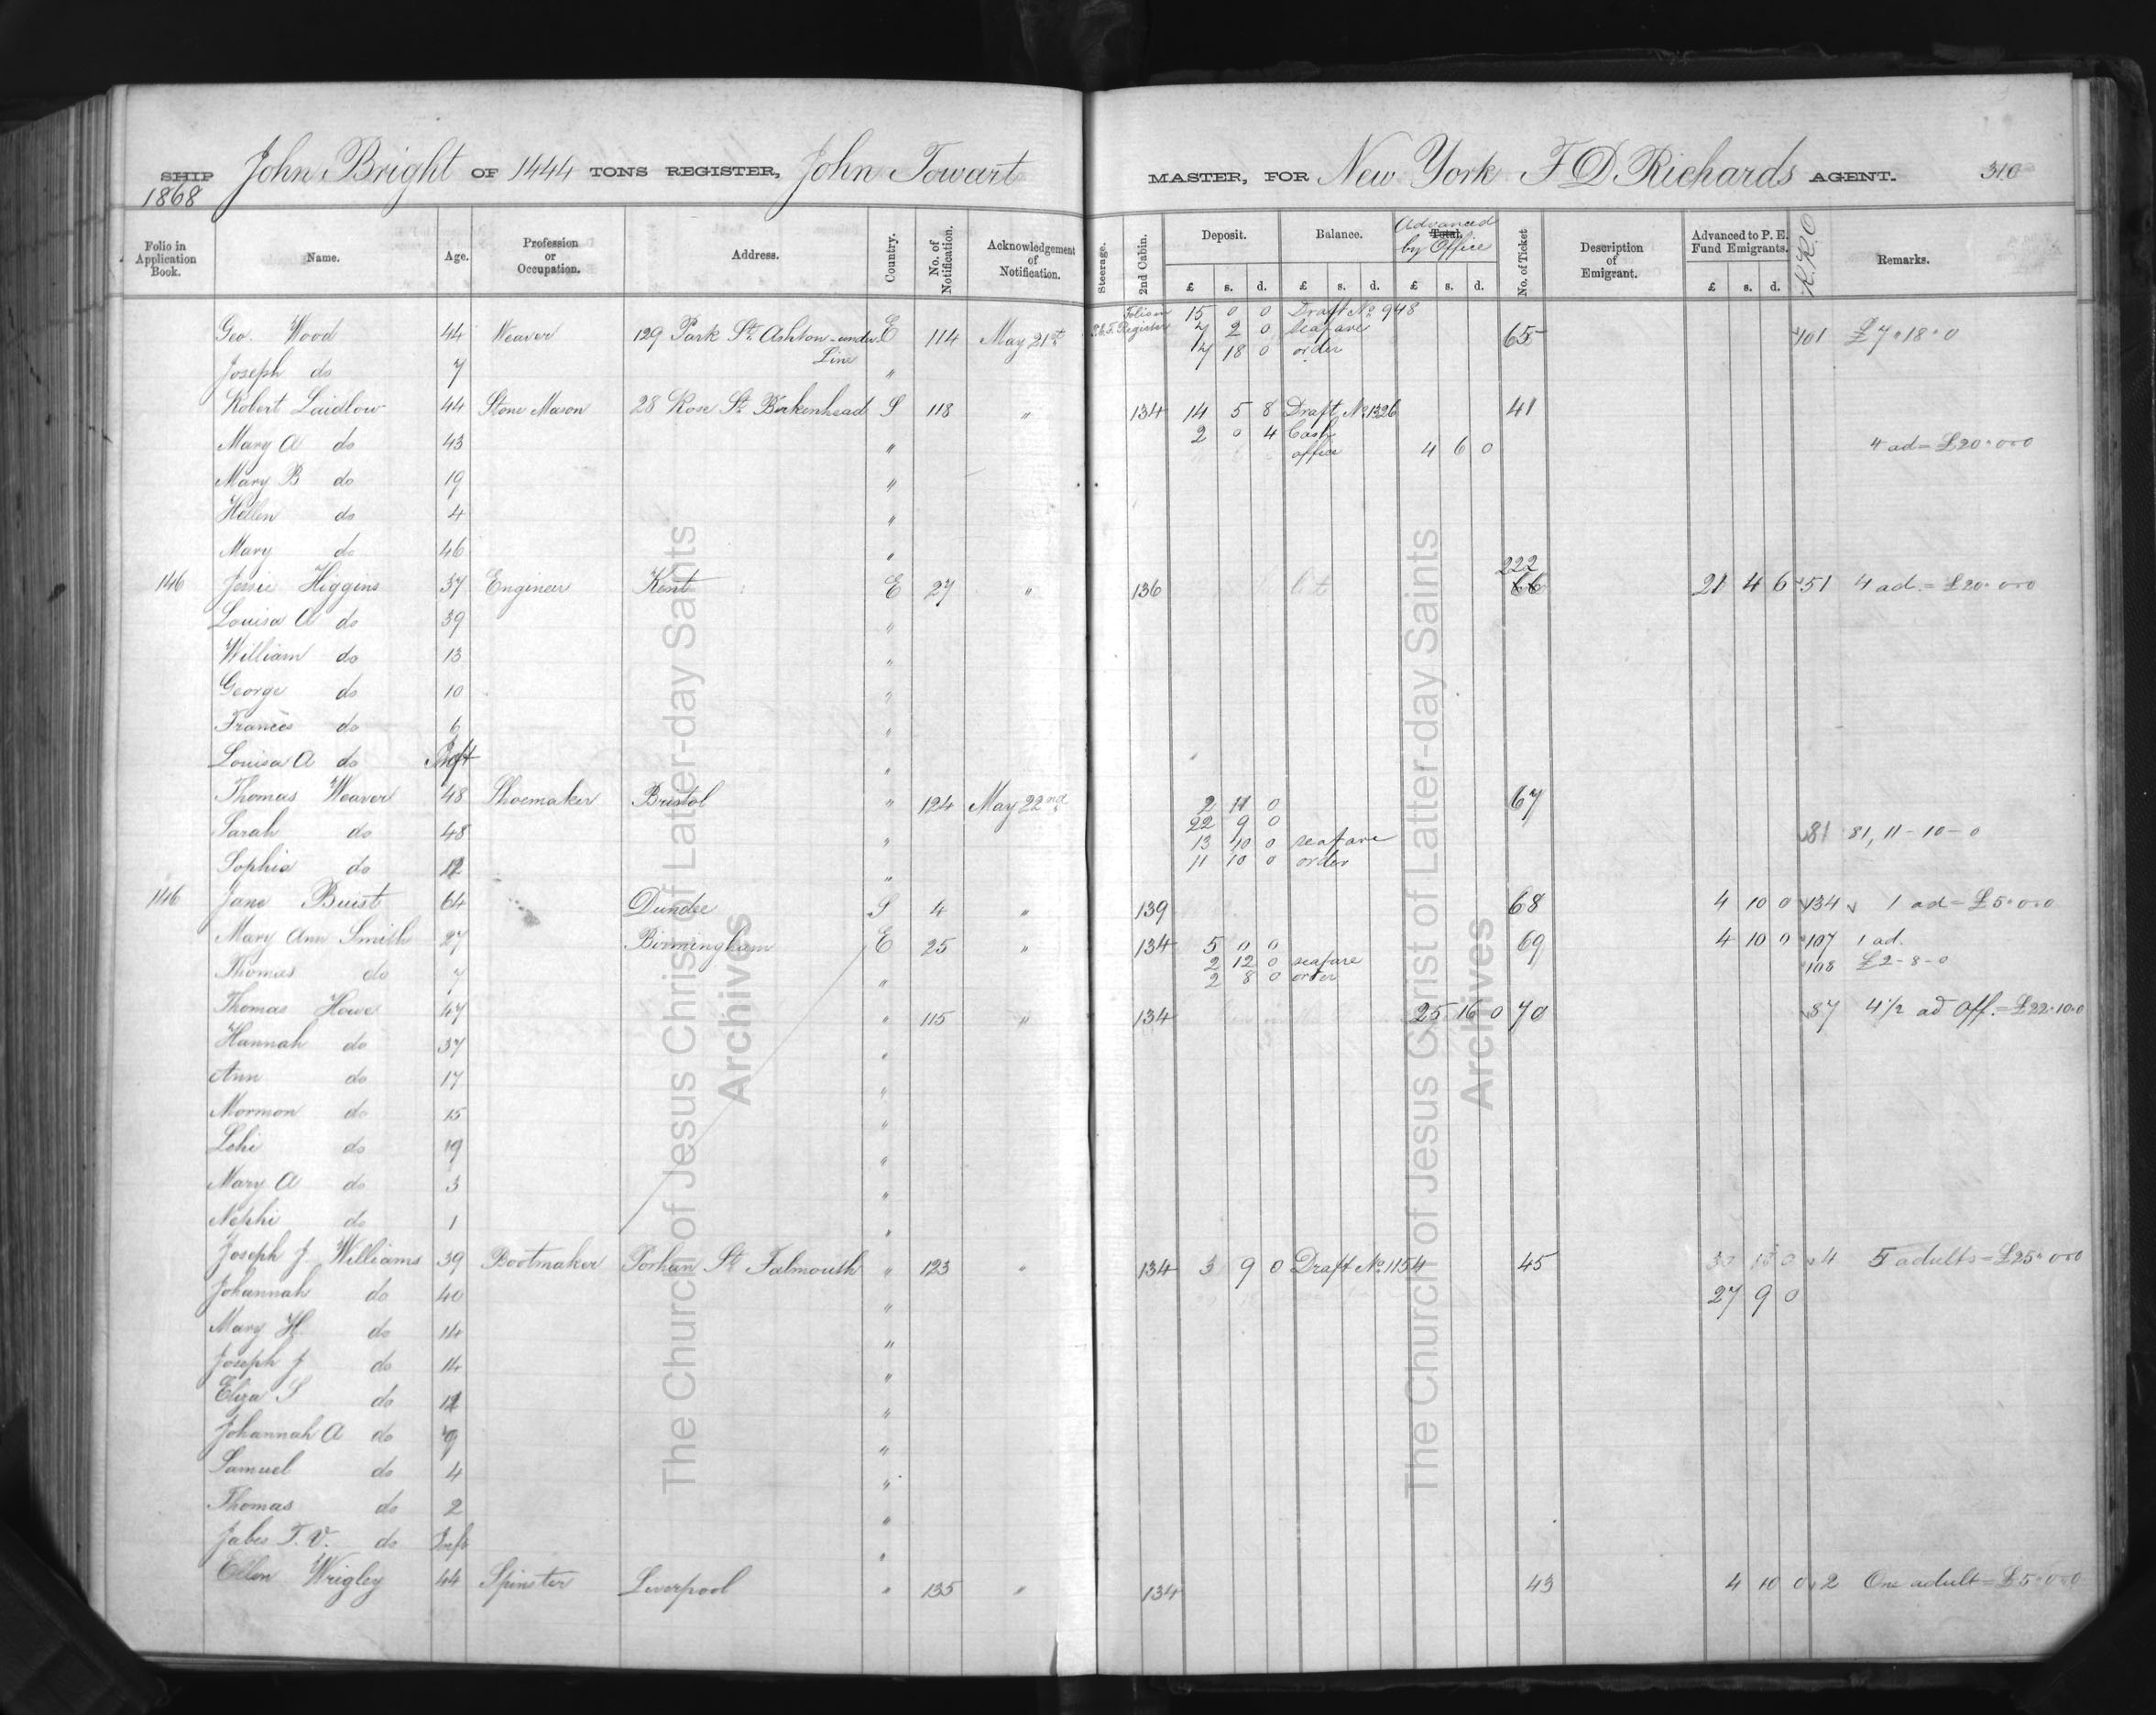 SHIP John Bright OF 1444 TONS REGISTER, John Towart MASTER, FOR New York F D Richards AGENT. 310
1868
Folio in Application Book. Name. Age. Profession or Occupation. Address. Country. No. of Notification. Acknowledgement of Notification. Steerage. 2nd Cabin. Deposit. Balance. Total. Advanced by Office No. of Ticket Description of Emigrant. Advanced to P. E. Fund Emigrants. R.R.O Remarks.
£ s. d. £ s. d. £ s. d. £ s. d.
Folio in P.E.F. Register 15 0 0 Draft No 948
Geo. Wood 44 Weaver 129 Park St. Ashton-under- E 114 May 21st 7 2 0 Seafare 65 101 £7.18.0
Line 7 18 0 order
Joseph do 7 "
Robert Laidlow 44 Stone Mason 28 Rose St. Birkenhead S 118 " 134 14 5 8 Draft No 1326 41
2 0 4 Cash
Mary A do 43 " office 4 6 0 4 ad = £20.0.0
Mary B do 19 "
Hellen do 4 "
Mary do 46 "
222
146 Jessie Higgins 37 Engineer Kent E 27 " 136 66 21 4 6 51 4 ad. = £20.0.0
Louisa A do 39 "
William do 13 "
George do 10 "
Frances do 6 "
Louisa A do Inft "
Thomas Weaver 48 Shoemaker Bristol " 124 May 22nd 2 11 0 67
22 9 0
Sarah do 48 " 13 10 0 seafare 81 81, 11-10-0
Sophia do 12 " 11 10 0 order
146 Jane Buist 64 Dundee S 4 " 139 68 4 10 0 134 1 ad = £5.0.0
Mary Ann Smith 27 Birmingham E 25 " 134 5 0 0 69 4 10 0 107 1 ad.
2 12 0 seafare 108 £2-8-0
Thomas do 7 " 2 8 0 order
Thomas Howe 47 " 115 " 134 25 16 0 70 87 4 1/2 ad Off. = £22.10.0
Hannah do 37 "
Ann do 17 "
Mormon do 15 "
Lehi do 19 "
Mary A do 3 "
Nephi do 1 "
Joseph J Williams 39 Bootmaker Porhan St. Falmouth " 123 " 134 3 9 0 Draft No 1154 45 30 18 0 4 5 adults = £25.0.0
Johannah do 40 " 27 9 0
Mary H. do 14 "
Joseph J do 14 "
Eliza S do 12 "
Johannah A do 9 "
Samuel do 4 "
Thomas do 2 "
Jabes T. V. do Inft "
Ellen Wrigley 44 Spinster Liverpool " 135 " 134 43 4 10 0 2 One adult = £5.0.0
The Church of Jesus Christ of Latter-day Saints
Archives
The Church of Jesus Christ of Latter-day Saints
Archives